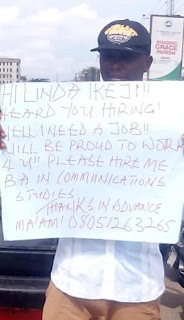 BUILDING
GRACE
PARISH
HI LINDA IKEJI!!
HEARD YOU HIRING!
WELL I NEED A JOB!!
WILL BE PROUD TO WORK
4 U!! PLEASE HIRE ME
B.A IN COMMUNICATIONS
STUDIES
THANKS IN ADVANCE
MA'AM! 08051263265